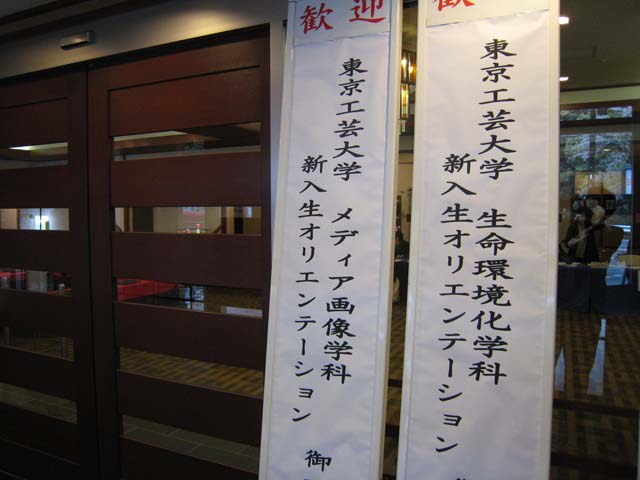 歓迎
東京工芸大学 生命環境化学科
新入生オリエンテーション
東京工芸大学 メディア画像学科
新入生オリエンテーション 御